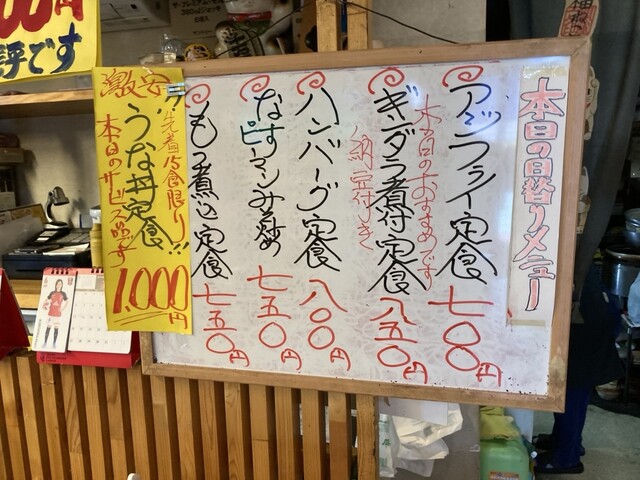 本日の日替りメニュー
アジフライ定食 七〇〇円
本日のおすすめです
ギンダラ煮付定食 八五〇円
納豆付き
ハンバーグ定食 八〇〇円
なすピーマンみそ炒め 七五〇円
もつ煮込定食 七五〇円
激安
先着15食限り!!
うな丼定食
本日のサービス品です
1,000円
00円
好評です